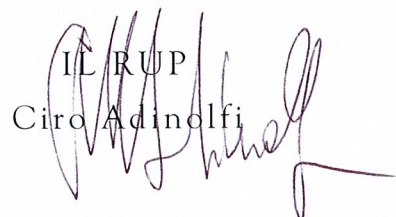 IL RUP
Ciro Adinolfi